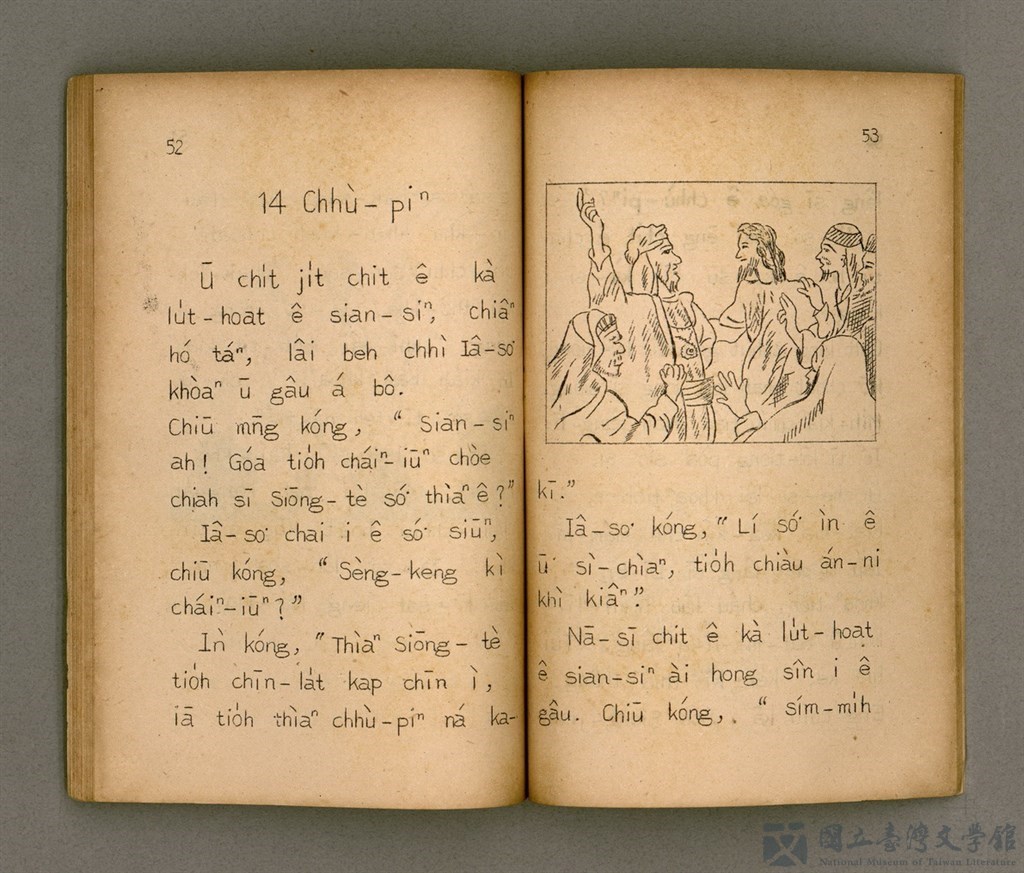 52
14 Chhù-piⁿ
Ū chi̍t ji̍t chit ê kà
lu̍t-hoat ê sian-siⁿ, chiâⁿ
hó táⁿ, lâi beh chhì Iâ-so͘
khòaⁿ ū gâu á bô.
Chiū mn̄g kóng, “Sian-siⁿ
ah! Góa tio̍h cháiⁿ-iūⁿ chòe
chiah sī Siōng-tè só͘ thiàⁿ ê?”
Iâ-so͘ chai i ê só͘ siūⁿ,
chiū kóng, “Sèng-keng kì
cháiⁿ-iūⁿ?”
In̍ kóng, “Thìaⁿ Siōng-tè
tio̍h chīn-la̍t kap chīn ì,
iā tio̍h thìaⁿ chhù-piⁿ ná ka-
53
kī.”
Iâ-so͘ kóng, “Lí só͘ ìn ê
ū sì-chìaⁿ, tio̍h chiàu án-ni
khì kiâⁿ.”
Nā-sī chit ê kà lu̍t-hoat
ê sian-siⁿ ài hong sîn i ê
gâu. Chiū kóng, “sím-mi̍h
國立臺灣文學館
National Museum of Taiwan Literature